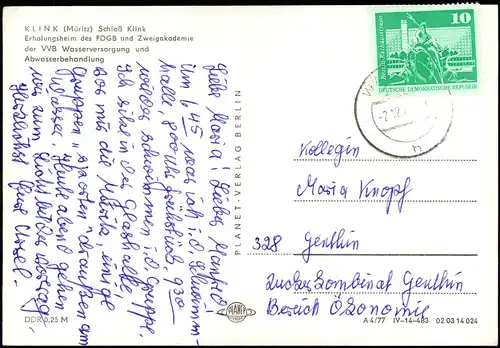 KLINK (Müritz) Schloß Klink
Erholungsheim des FDGB und Zweigakademie
der VVB Wasserversorgung und
Abwasserbehandlung
Liebe Maria! Lieber Manfred!
Um 6.45 war ich i. d. Schwimm-
halle, 8.00 Uhr Frühstück, 9.30
wieder schwimmen i. d. Gruppe.
Ich sitze in der Glashalle,
vor mir die Müritz, einige
Gruppen "sporten" draußen am
Wasser. Heute abend gehen
wir zum Lichtbildervortrag
Herzlichst Eure Ursel.
PLANET-VERLAG BERLIN
10
DEUTSCHE DEMOKRATISCHE REPUBLIK
Kollegin
Maria Knopf
328 Genthin
Zuckerkombinat Genthin
Bereich Ökonomie
DDR 0,25 M
PLANET
A 4/77 IV-14-483 02 03 14 024